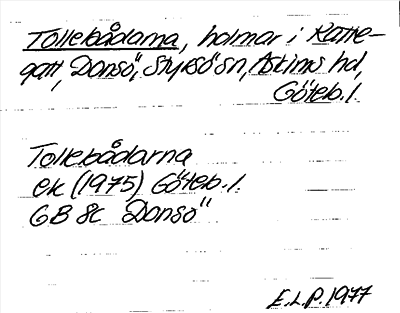 Tollebådarna, holmar i Katte-
gatt, Donsö, Styrsö sn, Askims hd,
Göteb. l.
Tollebådarna
ek (1975) Göteb. l.
GB 8c Donsö"
E.L.P. 1977